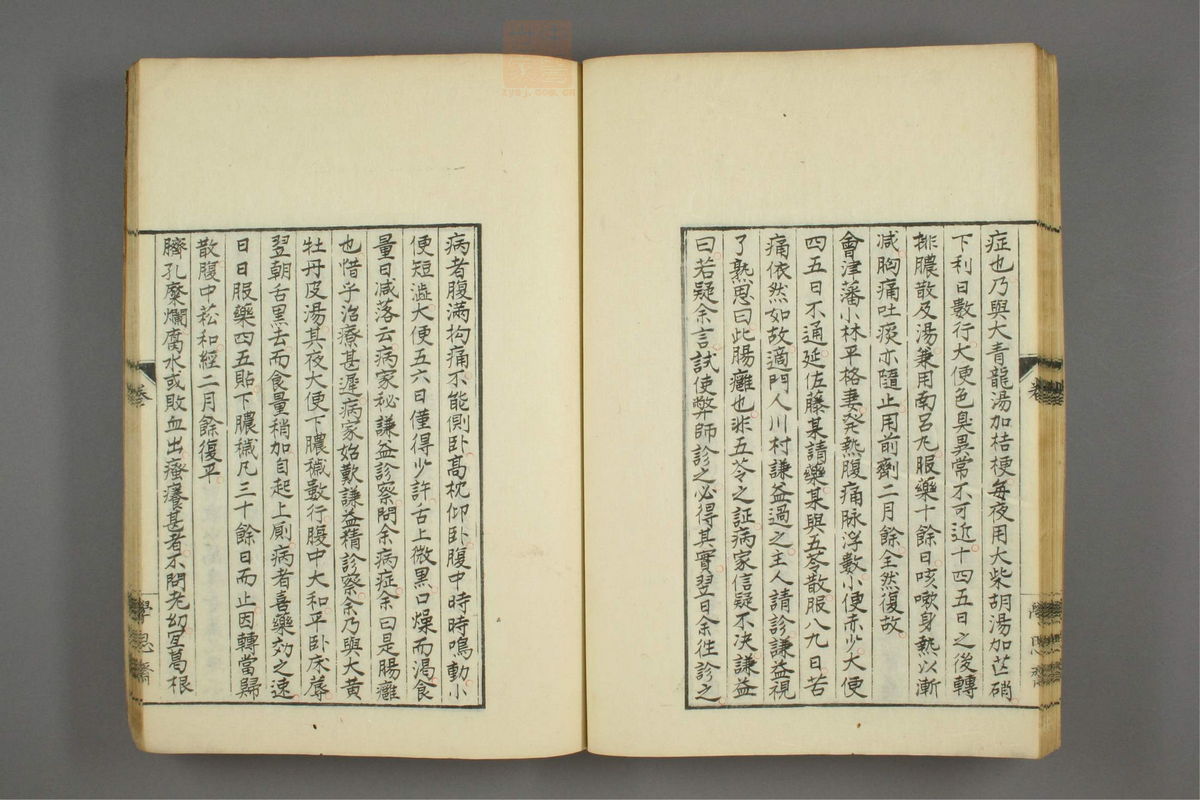 症也乃與大青龍湯加桔梗每夜用大柴胡湯加芒硝
下利日數行大便色臭異常不可近十四五日之後轉
排膿散及湯兼用南呂丸服藥十餘日咳嗽身熱以漸
减胸痛吐痰亦隨止用前劑二月餘全然復故
會津藩小林平格妻発熱腹痛脉浮數小便赤少大便
四五日不通延佐藤某請藥某與五苓散服八九日苦
痛依然如故適門人川村謙益過之主人請診謙益視
了熟思曰此腸癰也非五苓之証病家信疑不决謙益
曰若疑余言試使弊師診之必得其實翌日余徃診之
病者腹满拘痛不能側卧高枕仰卧腹中時時鳴動小
便短澁大便五六日僅得少許舌上微黒口燥而渇食
量日减落云病家秘謙益診察問余病症余曰是腸癰
也惜乎治療甚遲病家始歎謙益精診察余乃與大黄
牡丹皮湯其夜大便下膿穢數行腹中大和平卧床蓐
翌朝舌黒去而食量稍加自起上厠病者喜藥効之速
日日服藥四五貼下膿穢凡三十餘日而止因轉當歸
散腹中菘和經二月餘復平
臍孔糜爛腐水或敗血出瘙癢甚者不問老幼宜葛根
學思齋
zysj.com.cn